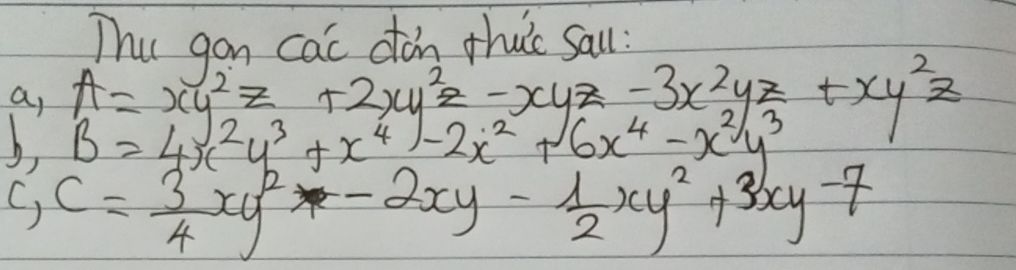 Thu gọn các đơn thức sau:
a, A = xy²z + 2xy²z - xyz - 3x²yz + xy²z
b, B = 4x²y³ + x⁴ - 2x² + 6x⁴ - x²y³
c, C = 3/4 xy² - 2xy - 1/2 xy² + 3xy - 7